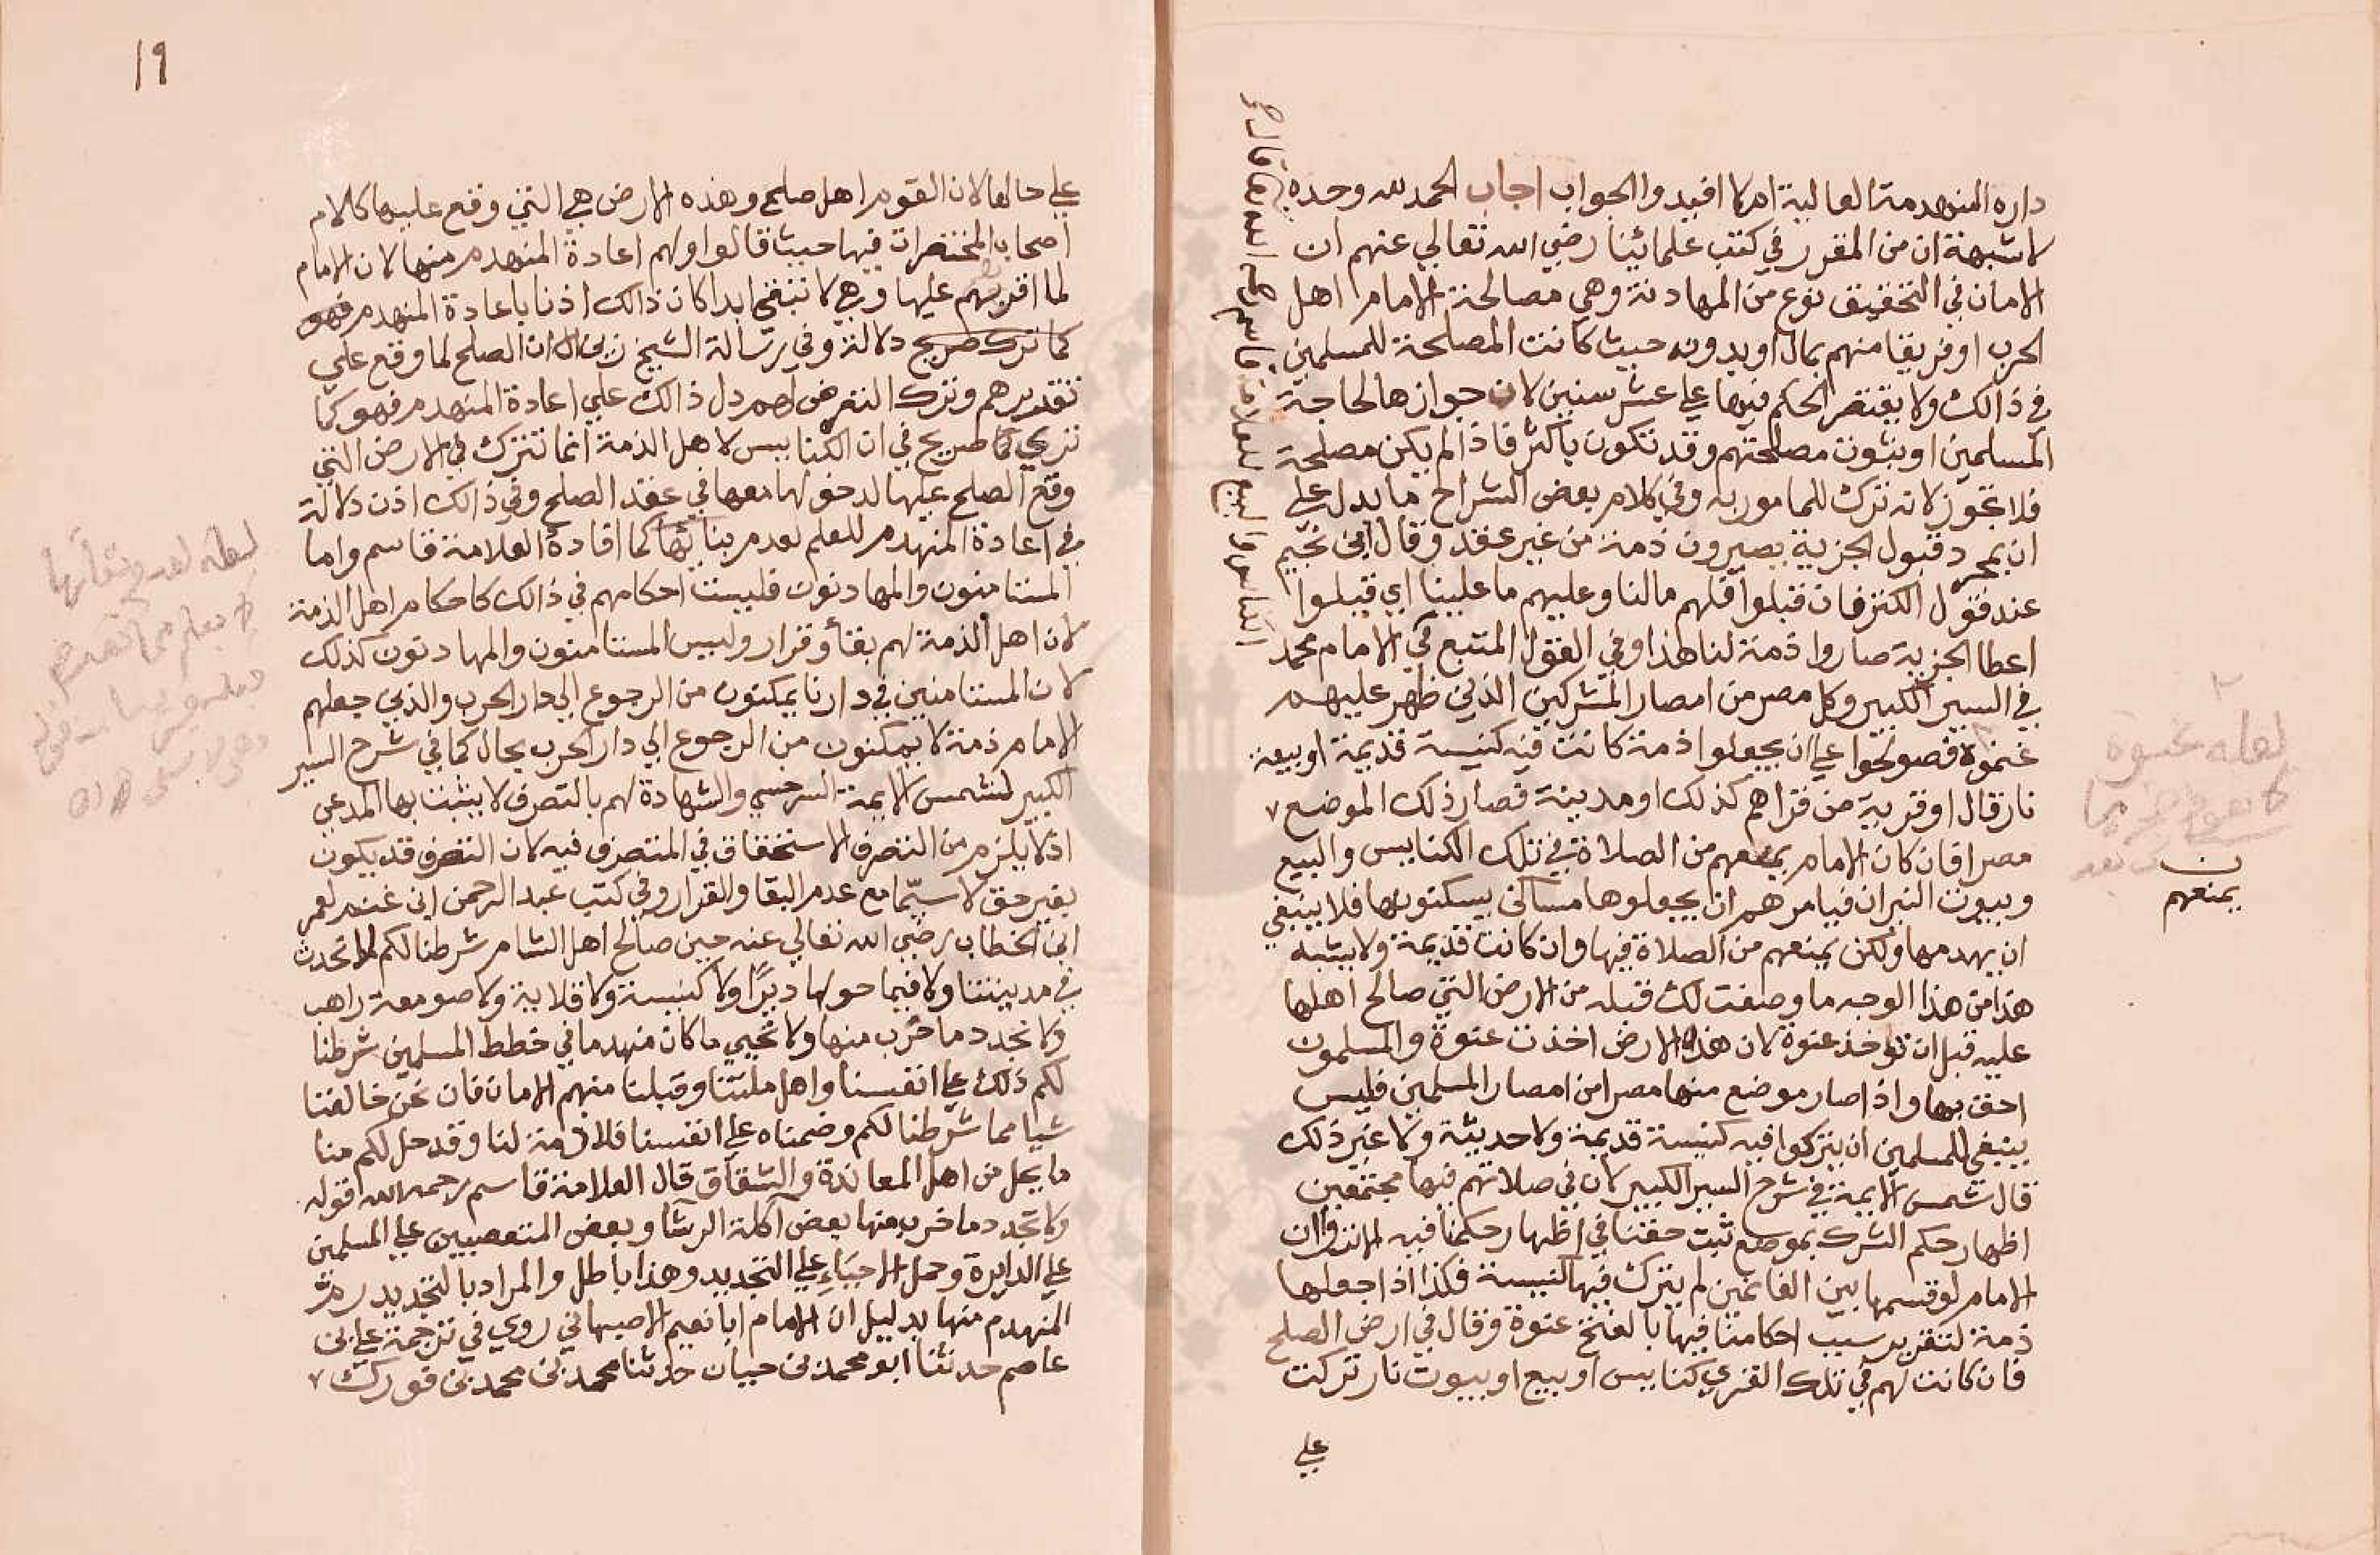 داره المنهدمة العالية ام لا افيدوا الجواب اجاب الحمد لله وحده
لا شبهة ان من المقرر في كتب علمائنا رضي الله تعالي عنهم ان
الامان في التحقيق نوع من المهادنة وهي مصالحة الامام اهل
الحرب او فريقا منهم بمال او بدونه حيث كانت المصلحة للمسلمين
في ذالك ولا يقتصر الحكم فيها علي عشر سنين لان جوازها لحاجة
المسلمين او بثوت مصلحتهم وقد تكون باكثر فاذا لم يكن مصلحة
فلا تجوز لانه ترك للمامور به وفي كلام بعض الشراح ما يدل علي
ان بمجرد قبول الجزية يصيرون ذمة من غير عقد وقال ابن نجيم
عند قول الكنز فان قبلوا فلهم مالنا وعليهم ما علينا اي قبلوا
اعطا الجزية صاروا ذمة لنا هذا وفي القول المتبع في الامام محمد
في السير الكبير وكل مصر من امصار المشركين الذين ظهر عليهم
عنوة فصولحوا علي ان يجعلوا ذمة كانت فيه كنيسة قديمة او بيعة
نار قال او قرية من قراهم كذلك او مدينة فصار ذلك الموضع
مصرا فان كان الامام يمنعهم من الصلاة في تلك الكنايس والبيع
وبيوت النيران فيامرهم ان يجعلوها مساكن يسكنونها فلا ينبغي
ان يهدمها ولكن يمنعهم من الصلاة فيها وان كانت قديمة ولا يشبه
هذا من هذا الوجه ما وصفت لك قبله من الارض التي صالح اهلها
عليه قبل ان تؤخذ عنوة لان هذه الارض اخذت عنوة والمسلمون
احق بها واذا صار موضع منها مصرا من امصار المسلمين فليس
ينبغي للمسلمين ان يتركوا فيه كنيسة قديمة ولا حديثة ولا غير ذلك
قال شمس الايمة في شرح السير الكبير لان في صلاتهم فيها مجتمعين
اظهار حكم الشرك بموضع ثبت حقنا في اظهار حكمنا فيه
الامام لو قسمها بين الغانمين لم يترك فيها كنيسة فكذا اذا جعلها
ذمة لتقرير سبب احكامنا فيها بالفتح عنوة وقال في ارض الصلح
فان كانت لهم في تلك القري كنايس او بيع او بيوت نار تركت
علي
يمنعهم
لعله عنوة
١٩
علي حالها لان القوم اهل صلح وهذه الارض هي التي وقع عليها كلام
اصحاب المختصرات فيها حيث قالوا ولهم اعادة المنهدم منها لان الامام
لما اقرهم عليها وهي لا تبقي ابدا كان ذالك اذنا باعادة المنهدم فهو
كما تري صريح دلالة وفي رسالة الشيخ زين ان الصلح لما وقع علي
تقريرهم وترك التعرض لهم دل ذالك علي اعادة المنهدم فهو كما
تري صريح في ان الكنايس لاهل الذمة انما تترك في الارض التي
وقع الصلح عليها لدخولها معها في عقد الصلح وفي ذالك اذن دلالة
في اعادة المنهدم للعلم بعدم بنائها كما افادة العلامة قاسم واما
المستامنون والمهادنون فليست احكامهم في ذالك كاحكام اهل الذمة
لان اهل الذمة لهم بقا وقرار وليس المستامنون والمهادنون كذلك
لان المستامنين في دارنا يمكنون من الرجوع الي دار الحرب والذين جعلهم
الامام ذمة لا يمكنون من الرجوع الي دار الحرب بحال كما في شرح السير
الكبير لشمس الايمة السرخسي والشهادة لهم بالتصرف لا يثبت بها المدعي
اذ لا يلزم من التصرف الاستحقاق في المتصرف فيه لان التصرف قد يكون
بغير حق لا سيما مع عدم البقا والقرار وفي كتب عبد الرحمن ابن غنم لعمر
ابن الخطاب رضي الله تعالي عنه حين صالح اهل الشام شرطنا لكم ان لا نحدث
في مدينتنا ولا فيما حولها ديرا ولا كنيسة ولا قلاية ولا صومعة راهب
ولا نجدد ما خرب منها ولا نحيي ما كان منها في خطط المسلمين شرطنا
لكم ذلك علي انفسنا واهل ملتنا وقبلنا منهم الامان فان نحن خالفنا
شيا مما شرطنا لكم وضمناه علي انفسنا فلا ذمة لنا وقد حل لكم منا
ما يحل من اهل المعاندة والشقاق قال العلامة قاسم رحمه الله قوله
ولا نجدد ما خرب منها بعض اكلة الرشا وبعض المتعصبين علي المسلمين
علي الدايرة وحمل الاحياء علي التجديد وهذا باطل والمراد بالتجديد
المنهدم منها بدليل ان الامام ابا نعيم الاصبهاني روي في ترجمة علي بن
عاصم حدثنا ابو محمد بن حيان حدثنا محمد بن محمد بن فورك